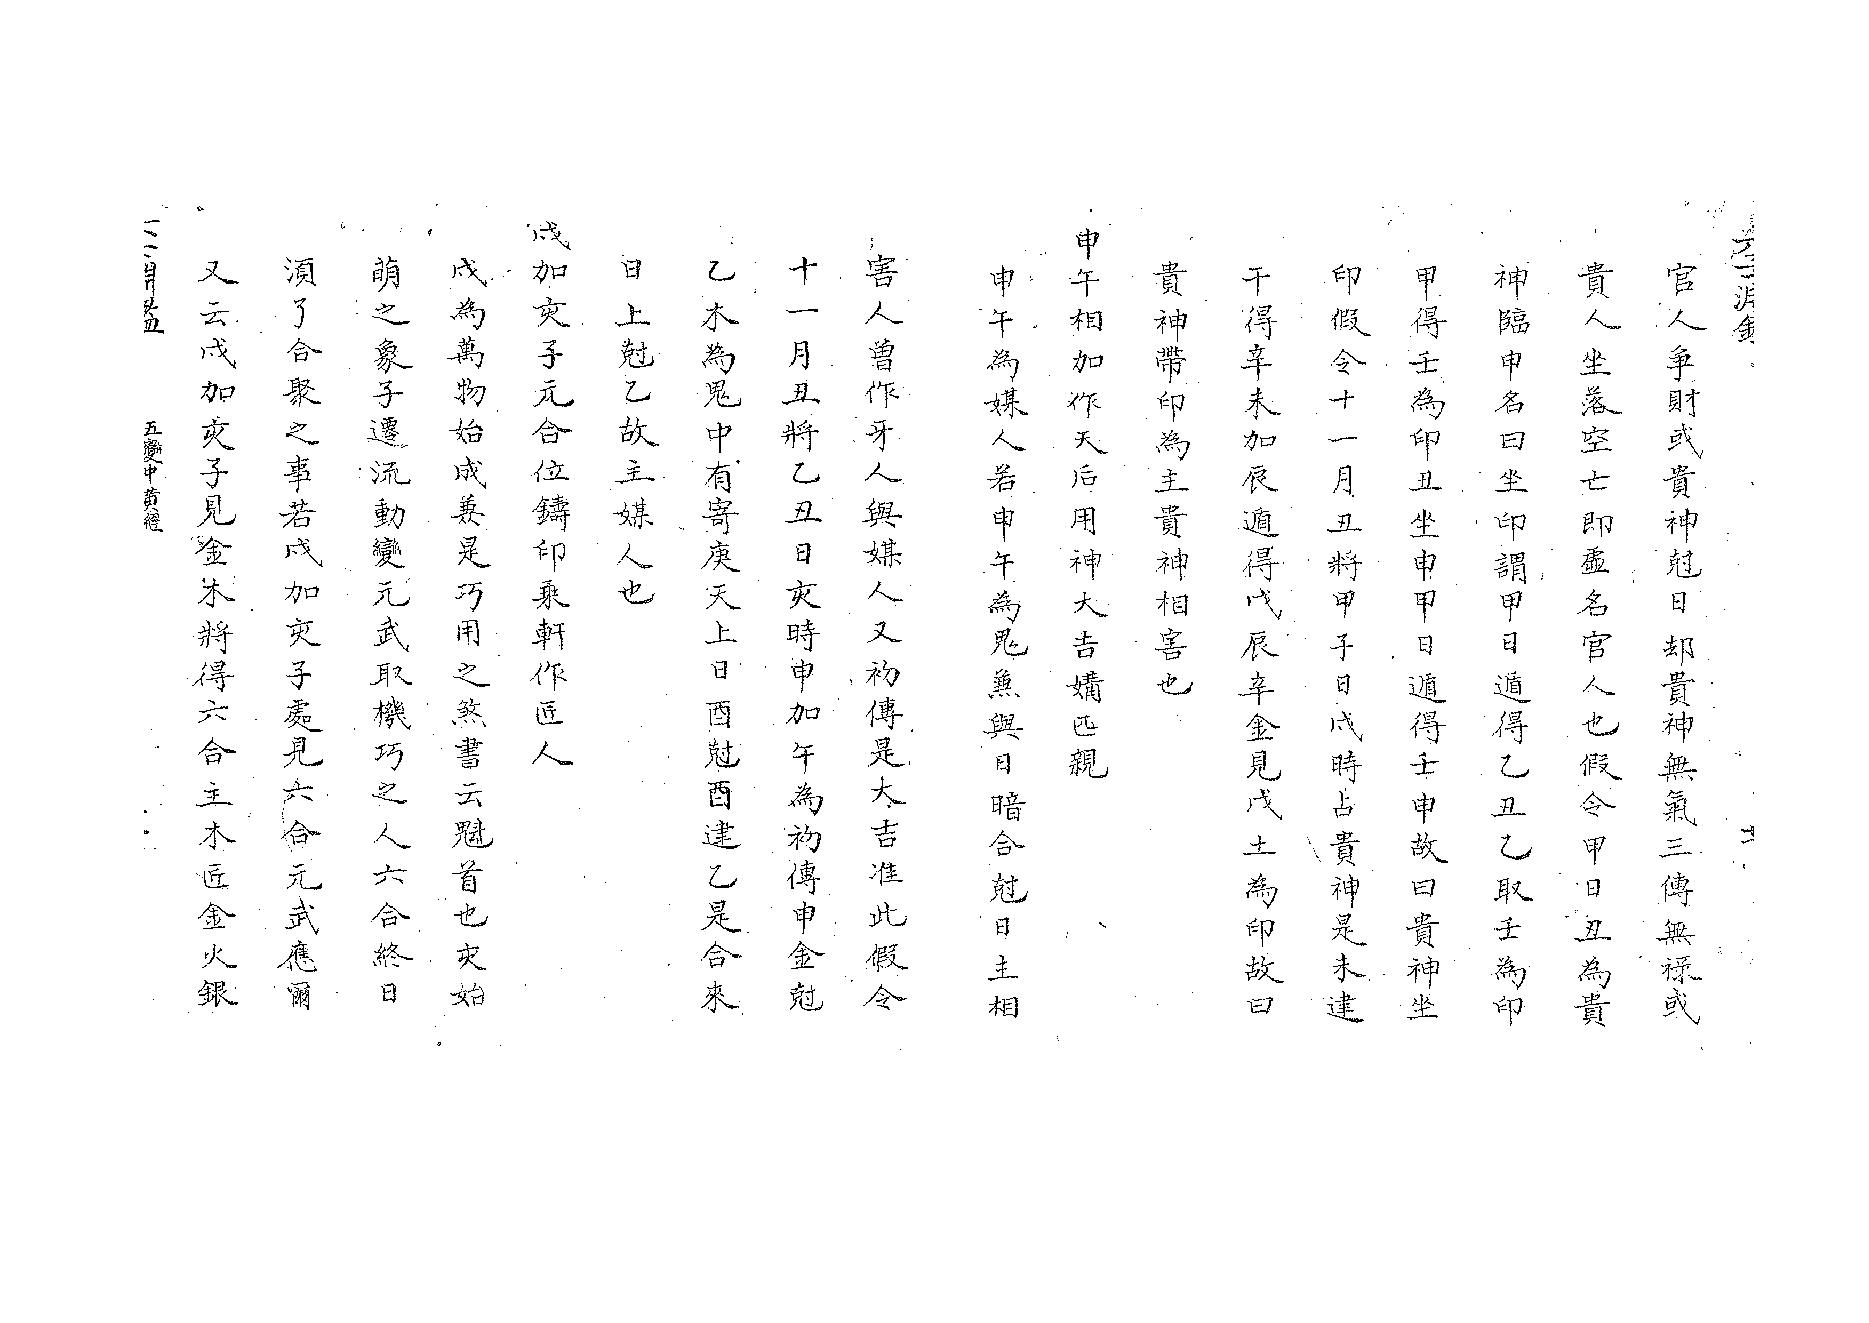 官人爭財或貴神尅日却貴神無氣三傳無祿或
貴人坐落空亡即虛名官人也假令甲日丑為貴
神臨申名曰坐印謂甲日遁得乙丑乙取壬為印
甲得壬為印丑坐申甲日遁得壬申故曰貴神坐
印假令十一月丑將甲子日戌時占貴神是未建
干得辛未加辰遁得戊辰辛金見戊土為印故曰
貴神帶印為主貴神相害也
申午相加作天后用神大吉媾匹親
申午為媒人若申午為鬼兼與日暗合尅日主相
害人曾作牙人與媒人又初傳是大吉准此假令
十一月丑將乙丑日亥時申加午為初傳申金尅
乙木為鬼中有寄庚天上日酉尅酉建乙是合來
日上尅乙故主媒人也
戌加亥子元合位鑄印乘軒作匠人
戌為萬物始成兼是巧用之煞書云魁首也亥始
萌之象子遷流動變元武取機巧之人六合終日
須了合聚之事若戌加亥子處見六合元武應爾
又云戌加亥子見金木將得六合主木匠金火銀
五變中黃經